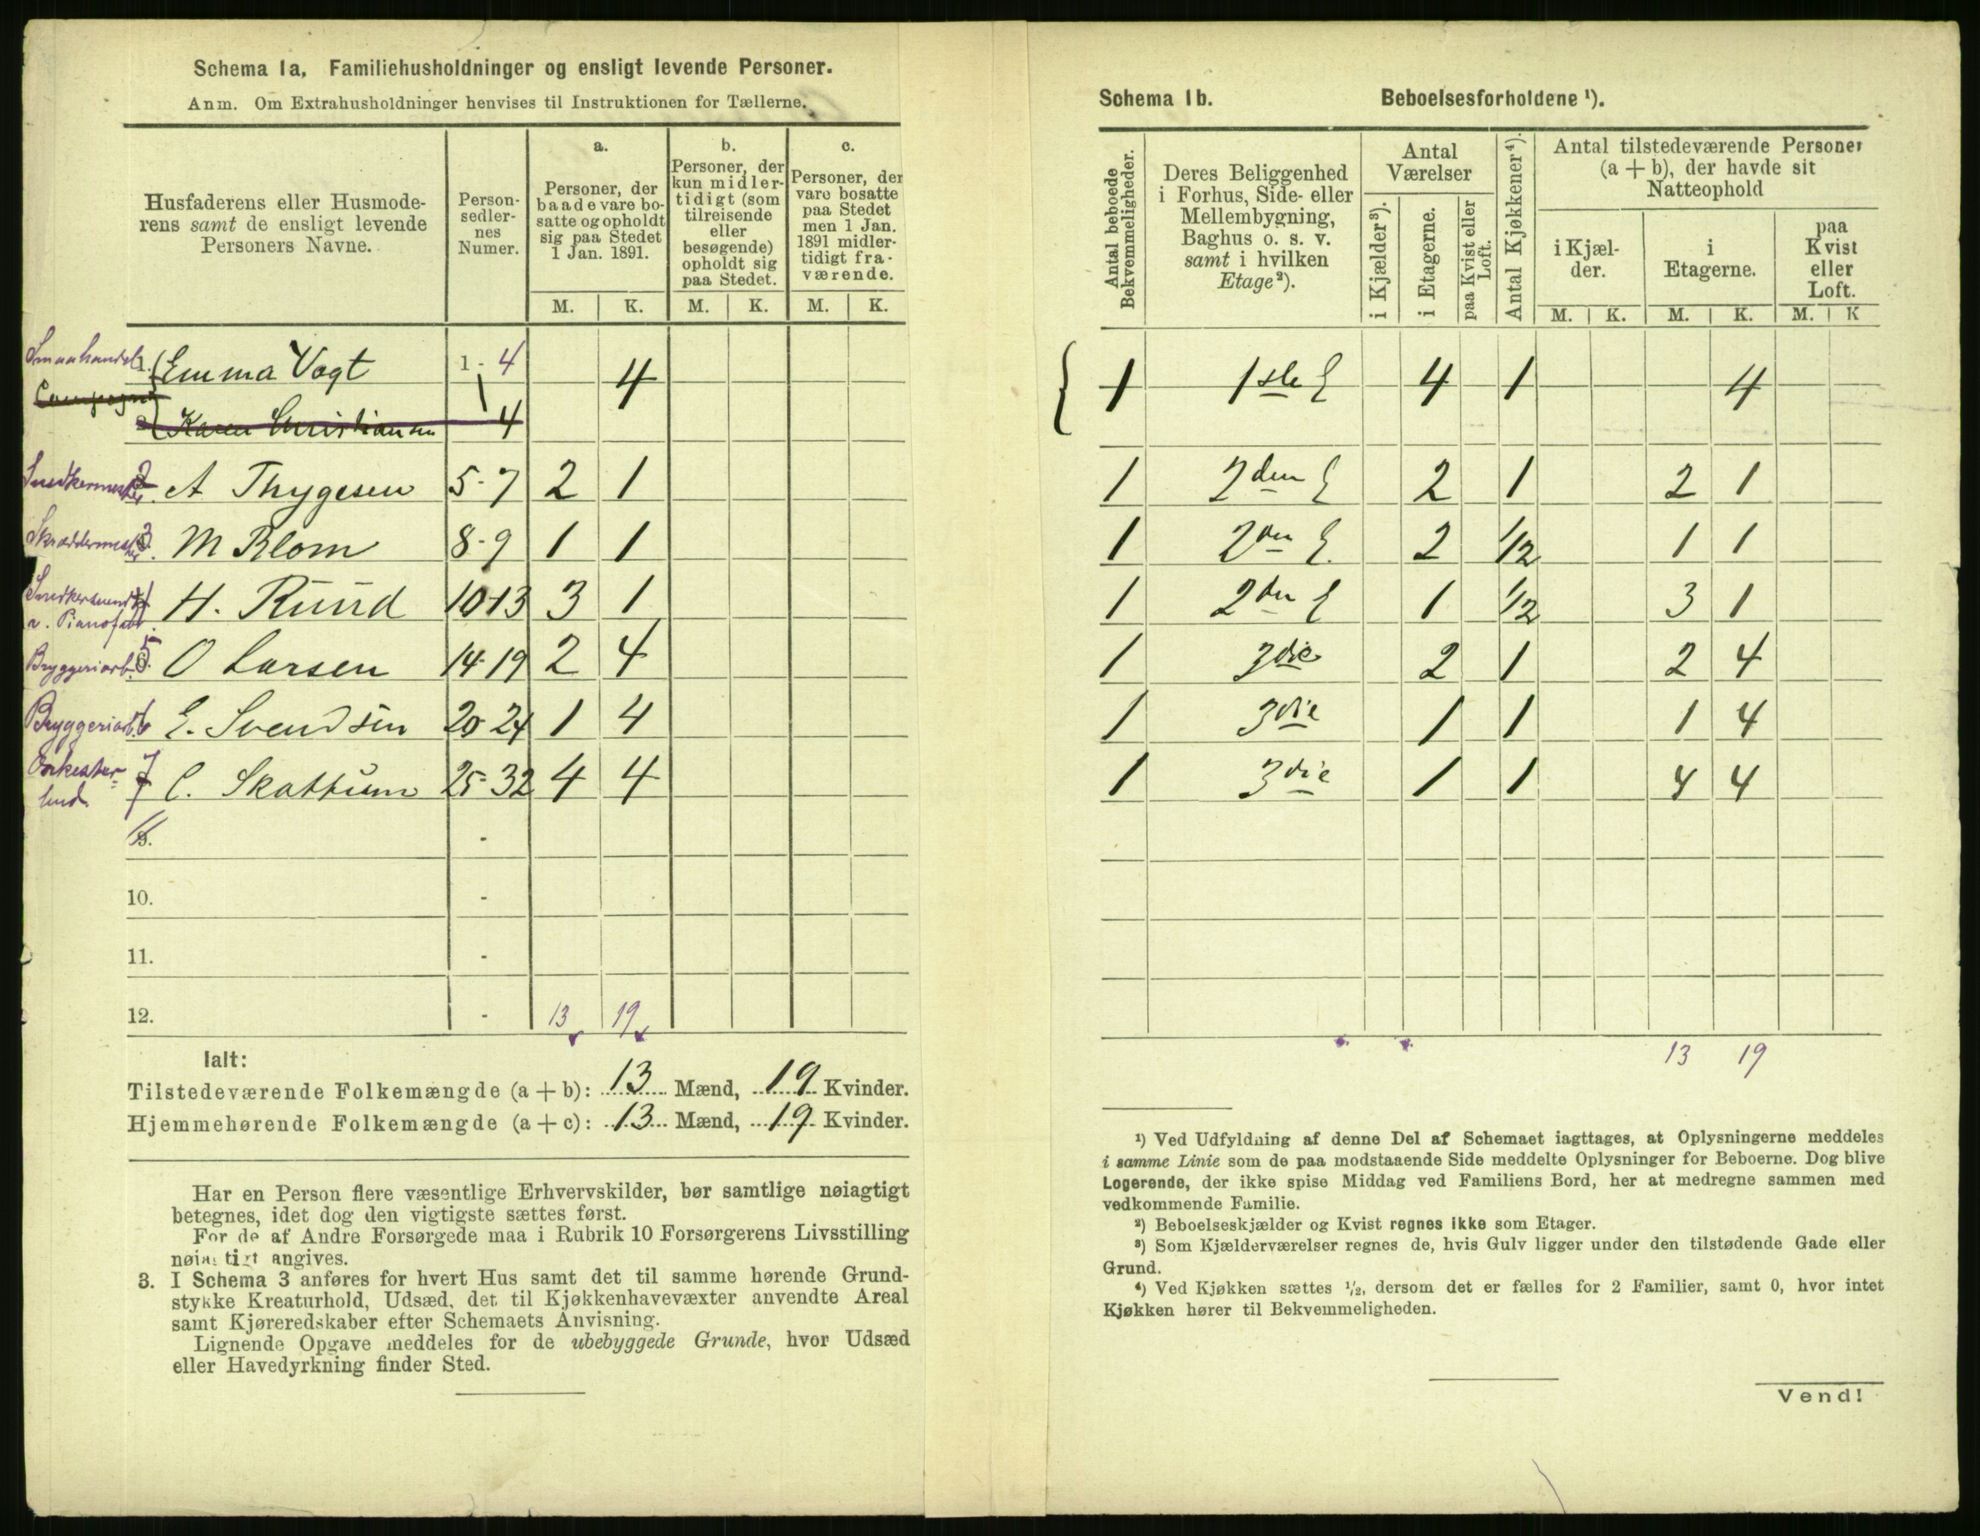 Schema 1a. Familiehusholdninger og ensligt levende Personer.
Anm. Om Extrahusholdninger henvises til Instruktionen for Tællerne.
Husfaderens eller Husmode-
rens samt de ensligt levende
Personers Navne.
Person-
sedler-
nes
Numer.
a.
Personer, der
baade vare bo-
satte og opholdt
sig paa Stedet
1 Jan. 1891.
b.
Personer, der
kun midler-
tidigt (som
tilreisende
eller
besøgende)
opholdt sig
paa Stedet.
c.
Personer, der
vare bosatte
paa Stedet
men 1 Jan.
1891 midler-
tidigt fra-
værende.
M. K. M. K. M. K.
Smaahandel 1. Emma Vogt 1 - 4 4
Karen Christiansen 4
Snedkermester 2 A Thygesen 5-7 2 1
Skræddermester 3 M Blom 8-9 1 1
4 H. Ruud 10-13 3 1
Bryggeriarb. 5 O Larsen 14-19 2 4
Bryggeriarb. 6 E. Svendsen 20-24 1 4
Orkester- 7 C. Skattum 25-32 4 4
9. -
10. -
11. -
12. - 13 19
Ialt:
Tilstedeværende Folkemængde (a + b): 13 Mænd, 19 Kvinder.
Hjemmehørende Folkemængde (a + c): 13 Mænd, 19 Kvinder.
Har en Person flere væsentlige Erhvervskilder, bør samtlige nøiagtigt
betegnes, idet dog den vigtigste sættes først.
For de af Andre Forsørgede maa i Rubrik 10 Forsørgerens Livsstilling
nøiagtigt angives.
3. I Schema 3 anføres for hvert Hus samt det til samme hørende Grund-
stykke Kreaturhold, Udsæd, det til Kjøkkenhavevæxter anvendte Areal
samt Kjøreredskaber efter Schemaets Anvisning.
Lignende Opgave meddeles for de ubebyggede Grunde, hvor Udsæd
eller Havedyrkning finder Sted.
Schema 1b. Beboelsesforholdene ¹).
Antal beboede
Bekvemmeligheder.
Deres Beliggenhed
i Forhus, Side- eller
Mellembygning,
Baghus o. s. v.
samt i hvilken
Etage²).
Antal
Værelser
i Kjælder³).
i Etagerne.
paa Kvist eller
Loft.
Antal Kjøkkener⁴).
Antal tilstedeværende Personer
(a + b), der havde sit
Natteophold
i Kjæl-
der.
i
Etagerne.
paa
Kvist
eller
Loft.
M. K. M. K. M. K
1 1ste E 4 1 4
1 2den E 2 1 2 1
1 2den E. 2 1/2 1 1
1 2den E 1 1/2 3 1
1 3die 2 1 2 4
1 3die 1 1 1 4
1 3die 1 1 4 4
13 19
¹) Ved Udfyldning af denne Del af Schemaet iagttages, at Oplysningerne meddeles
i samme Linie som de paa modstaaende Side meddelte Oplysninger for Beboerne. Dog blive
Logerende, der ikke spise Middag ved Familiens Bord, her at medregne sammen med
vedkommende Familie.
²) Beboelseskjælder og Kvist regnes ikke som Etager.
³) Som Kjælderværelser regnes de, hvis Gulv ligger under den tilstødende Gade eller
Grund.
⁴) Ved Kjøkken sættes ½, dersom det er fælles for 2 Familier, samt 0, hvor intet
Kjøkken hører til Bekvemmeligheden.
Vend!